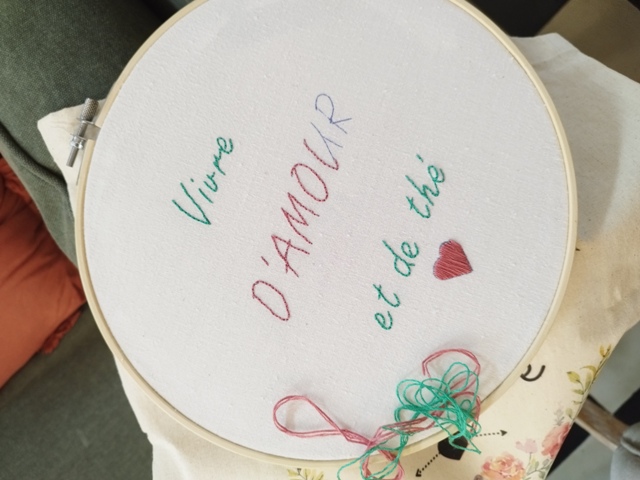 Vivre
D'AMOUR
et de thé